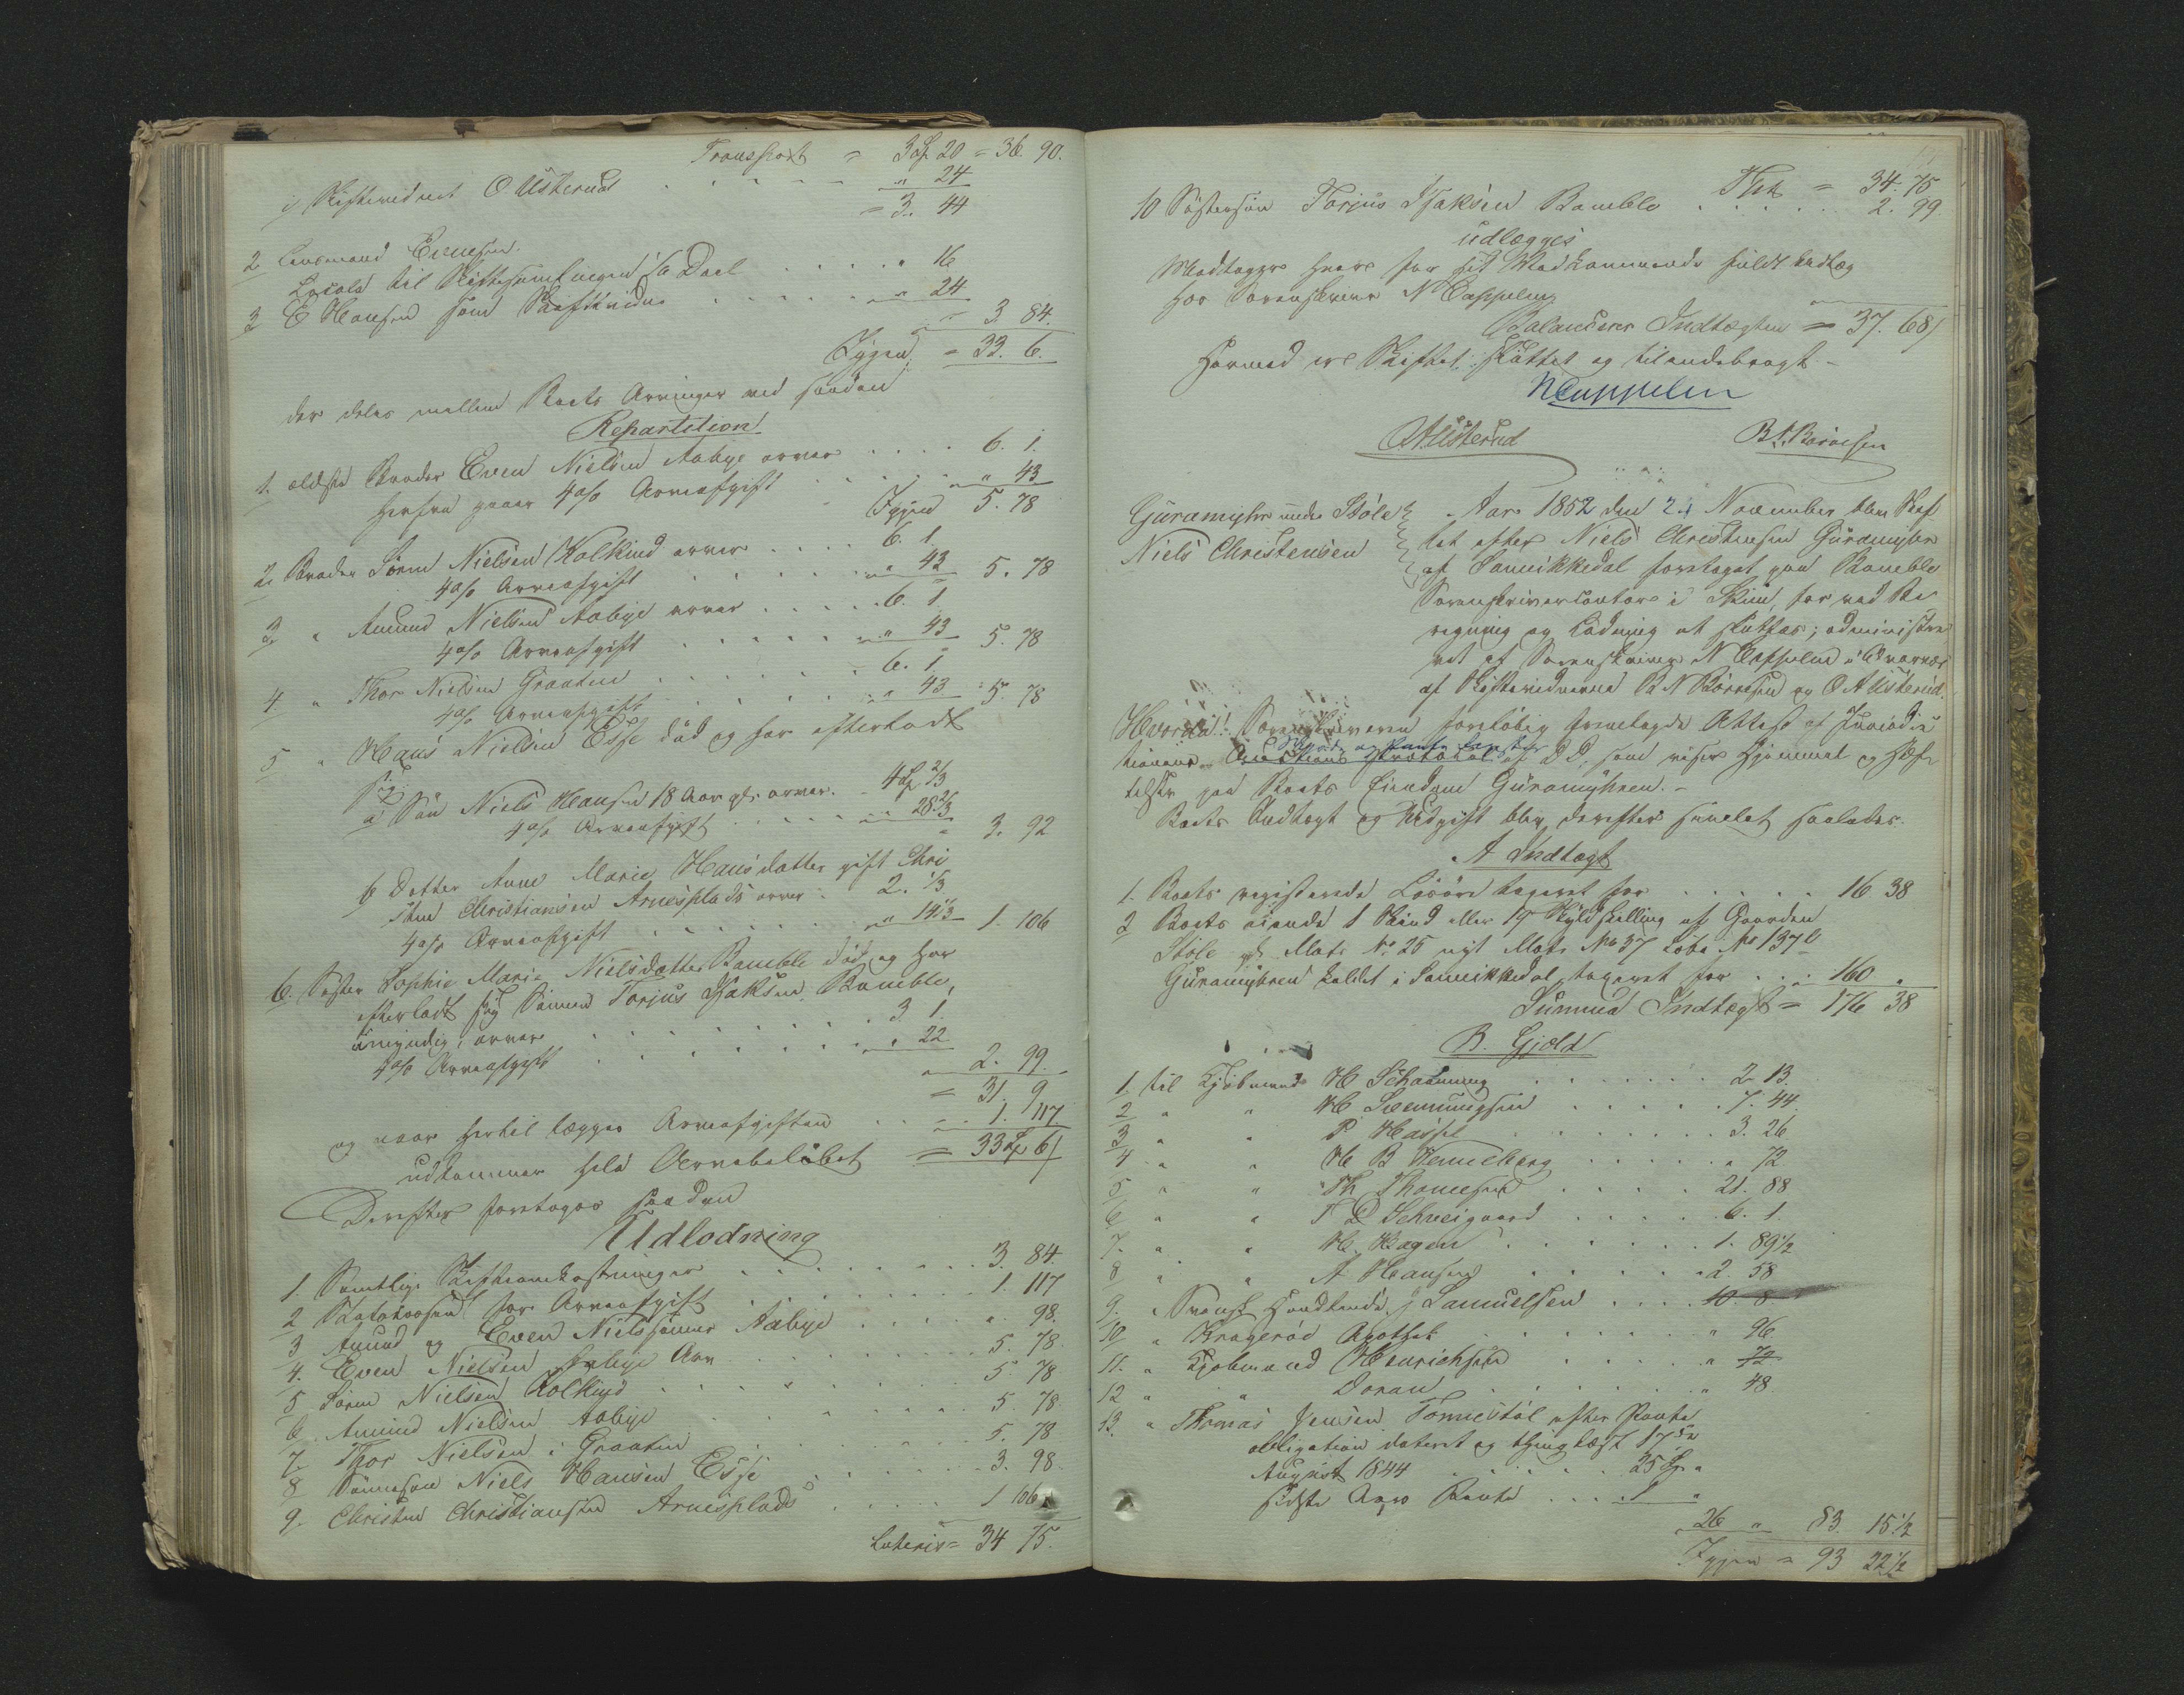 Transport = 3 Sp 20 = 36. 90.
Skiftevidnet O Usterud . . . . . " 24
= 3. 44
2 Lensmand Evensen
Locale til Skiftesamlingen /a Dael . . . . " 16
3 E Hansen som Skiftevidne . . . . . " 24
" 3. 84.
Igjen = 33. 6.
der deles mellem Boets Arvinger ved saadan
Repartition
1. ældste Broder Even Nielsen Aabye arver . . . . 6. 1.
herfra gaaer 4 o/o Arveafgift . . . . . " 43
Igjen 5. 78
2. Broder Søren Nielsen Kolkind arver . . . . 6. 1.
4 o/o Arveafgift . . . . . " 43 5. 78
3 " Amund Nielsen Aabye arver . . . . 6. 1.
4 o/o Arveafgift . . . . . " 43 5. 78
4 " Thor Nielsen Graaten . . . . . 6. 1.
4 o/o Arveafgift . . . . . " 43 5. 78
5 " Hans Nielsen Esse død og har efterladt
sig:
a Søn Niels Hansen 18 Aar gl. arver . 4 Sp 2/3
4 o/o Arveafgift . . . . . " 28 2/3
" 3. 92
b Datter Anne Marie Hansdatter gift Chri
sten Christiansen Arnesplads arver . 2. 1/3
4 o/o Arveafgift . . . . . " 14 1/3 1. 106
6. Søster Sophie Marie Nielsdatter Bamble død og har
efterladt sig Sønnen Torjus Isaksen Bamble,
umyndig, arver . . . . . 3. 1.
4 o/o Arveafgift . . . . . " 22
2. 99.
= 31. 9
og naar hertil lægges Arveafgiften . . . 1. 117
udkommer hele Arvebeløbet = 33 Sp 6/
Derefter foretages saadan
Udlodning
1. Samtlige Skifteomkostninger . . . . . 3. 84.
2 Statskassen for Arveafgift . . . . . 1. 117
3 Amund og Even Nielssønner Aabye . . . . . " 98.
4. Even Nielsen Aabye Arv . . . . . 5. 78.
5 Søren Nielsen Kolkind . . . . . 5. 78
6 Amund Nielsen Aabye . . . . . 5. 78.
7 Thor Nielsen i Graaten . . . . . 5. 78
8 Sønnesøn Niels Hansen Esse . . . . . 3. 98.
9. Christen Christiansen Arnesplads . . . . . 1 106
Lateris = 34 75.
Tpt = 34. 75
10 Søstersøn Torjus Isaksen Bamble . . . . . 2. 99
udlægges
Modtager hver for sit Vedkommende fuldt Udlæg
hos Sorenskriver N Cappelen
Balancerer Indtægten = 37. 68/
Hermed er Skiftet sluttet og tilendebragt –
NCappelen
OAUsterud
B.N.Børresen
Guramyhr under Støle
Niels Christensen
Aar 1852 den 24 November blev Skif
tet efter Niels Christensen Guramyhr
af Sannikkedal foretaget paa Bamble
Sorenskrivercontor i Skien, for ved Be
regning og Lodning at sluttes; administre
ret af Sorenskriver N Cappelen i Overvær
af Skiftevidnerne B N Børresen og O A Usterud.
Hvorda! Sorenskriveren foreløbig fremlagde Attest af Jurisdic
tionens Skjøde og Pante Register
Auctions Protokol af DD, som viser Hjemmel og Hef
telser paa Boets Eiendom Guramyhren. –
Boets Indtægt og Udgift blev derefter samlet saaledes.
A Indtægt
1. Boets registerede Løsøre taxeret for . . . . . 16 38
2 Boets eiende 1 Skind eller 19 Skyldskilling af Gaarden
Støle gl. Matr No 25 nyt Matr No 37 Løbe No 137b
Guramyhren kaldet i Sannikkedal, taxeret for . . . 160 "
Summa Indtægt = 176 38
B. Gjæld
1. til Kjøbmand H Schanning . . . . . 2 13.
2 " " H. Semmingsen . . . . . 7. 44.
3 " " P. Hassel . . . . . 3. 26
4 " " H B Hennelberg . . . . . " 72
5 " " Th Thomesen . . . . . 21. 88
6 " " T D Schweigaard . . . . . 6. 1.
7. " " H. Bagen . . . . . 1. 89 1/2
8 " " A Hansen . . . . . 2. 58
9. " Svensk Handlende J Samuelsen . . . . 10 8
10 " Kragerøe Apothek . . . . . " 96
11. " Kjøbmand Henrichsen . . . . . " 72
12 " " Doran . . . . . " 48
13. " Thomas Jensen Tonnestøl efter Pante
obligation dateret og thinglæst 17de
August 1844 . . . . . 25 Sp "
sidste Aars Rente . . . . . 1 "
26 " 83. 15 1/2
Igjen = 93 22 1/2